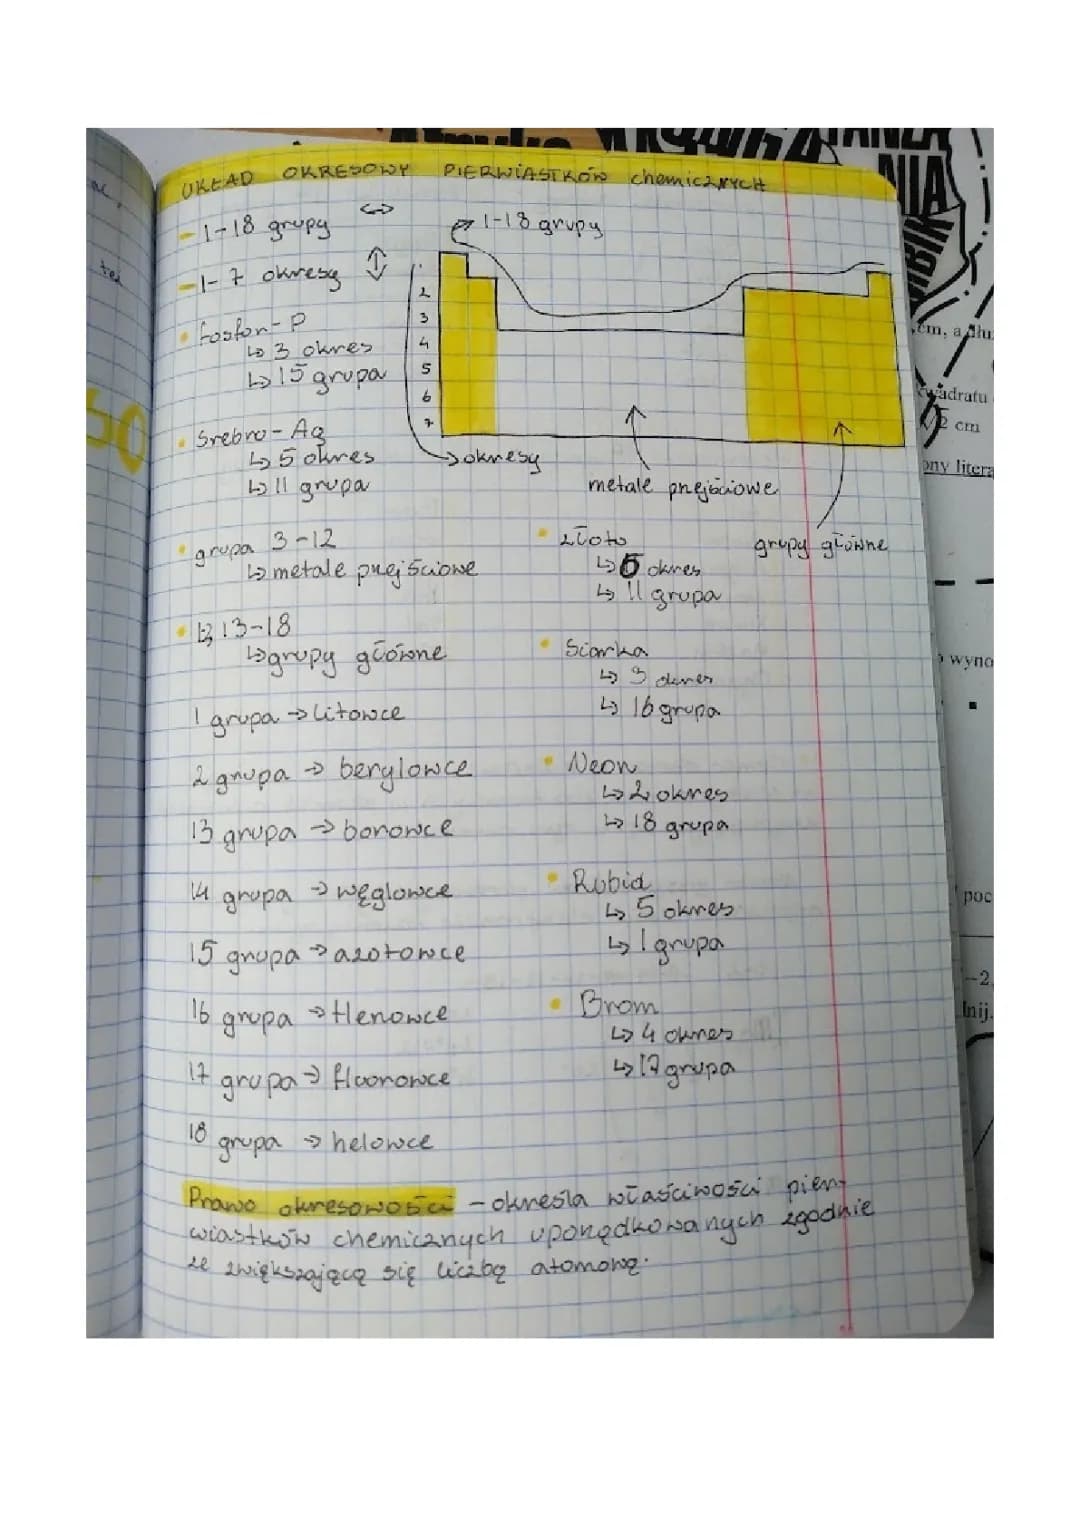 UKŁAD OKRESOWY PIERWIASTKÓW chemicznych
- 1-18 grupy ↔
- 1-7 okresy ↕
• fosfor - P
↳ 3 okres
↳ 15 grupa
• Srebro - Ag
↳ 5 okres
↳ 11 grupa
→ 1-18 grupy
1
2
3
4
5
6
7
→ okresy
metale przejściowe
grupy główne
• grupa 3-12
↳ metale przejściowe
• 1,2, 13-18
↳ grupy główne
1 grupa → litowce
2 grupa → berylowce
13 grupa → borowce
14 grupa → węglowce
15 grupa → azotowce
16 grupa → tlenowce
17 grupa → fluorowce
18 grupa → helowce
• złoto
↳ 6 okres
↳ 11 grupa
• Siarka
↳ 3 okres
↳ 16 grupa
• Neon
↳ 2 okres
↳ 18 grupa
• Rubid
↳ 5 okres
↳ 1 grupa
• Brom
↳ 4 okres
↳ 17 grupa
Prawo okresowości - określa właściwości pier-
wiastków chemicznych uporządkowanych zgodnie
ze zwiększającą się liczbą atomową.
cm, a
2 cm
wyno
poc
-2,
lnij.